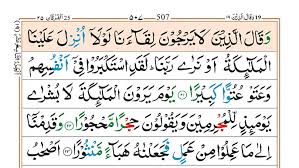 الفرقان ٢٥ ٥٠٧ 507 وقال الذين ١٩
وَقَالَ الَّذِيْنَ لَا يَرْجُوْنَ لِقَآءَنَا لَوْلَاۤ اُنْزِلَ عَلَيْنَا
الْمَلٰٓئِكَةُ اَوْ نَرٰى رَبَّنَا ؕ لَقَدِ اسْتَكْبَرُوْا فِىْۤ اَنْفُسِهِمْ
وَعَتَوْ عُتُوًّا كَبِيْرًا ﴿۲۱﴾ يَوْمَ يَرَوْنَ الْمَلٰٓئِكَةَ لَا بُشْرٰى
يَوْمَئِذٍ لِّلْمُجْرِمِيْنَ وَيَقُوْلُوْنَ حِجْرًا مَّحْجُوْرًا ﴿۲۲﴾ وَقَدِمْنَاۤ
اِلٰى مَا عَمِلُوْا مِنْ عَمَلٍ فَجَعَلْنٰهُ هَبَآءً مَّنْثُوْرًا ﴿۲۳﴾ اَصْحٰبُ